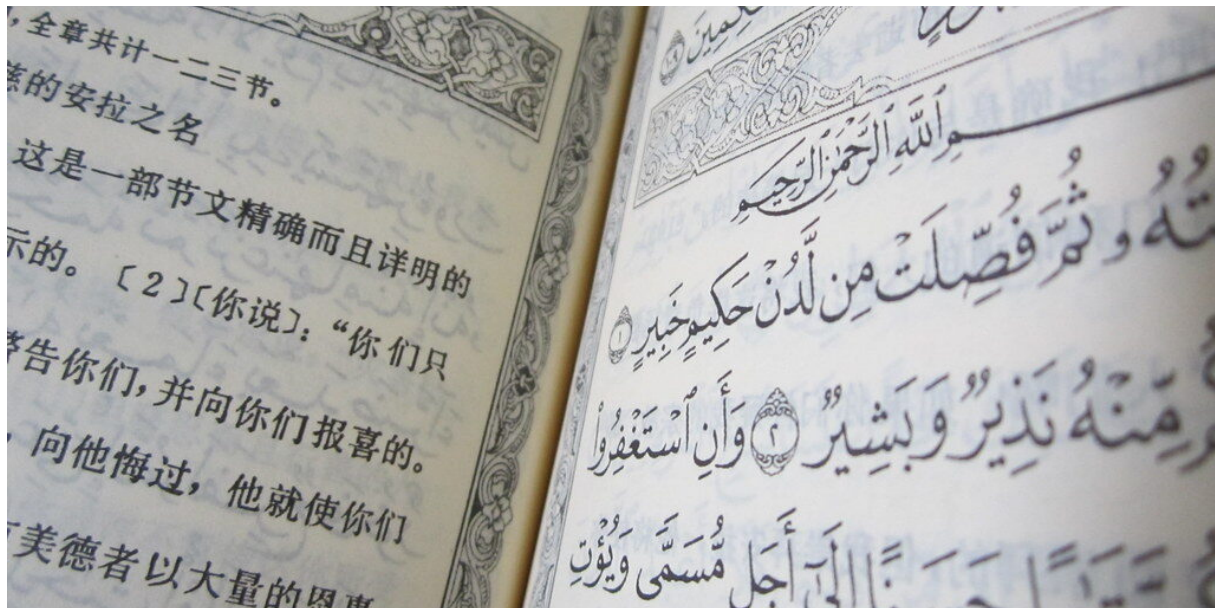 全章共计一二三节。
慈的安拉之名
这是一部节文精确而且详明的
示的。〔2〕〔你说〕：“你们只
警告你们，并向你们报喜的。
，向他悔过，他就使你们
美德者以大量的恩惠
كِمِينَ ٤٥
ٱللَّهِ ٱلرَّحْمَٰنِ ٱلرَّحِيمِ
تُهُۥ ثُمَّ فُصِّلَتْ مِن لَّدُنْ حَكِيمٍ خَبِيرٍ ١
مِّنْهُ نَذِيرٌ وَبَشِيرٌ ٢ وَأَنِ ٱسْتَغْفِرُوا۟
حَسَنًا إِلَىٰٓ أَجَلٍ مُّسَمًّى وَيُؤْتِ